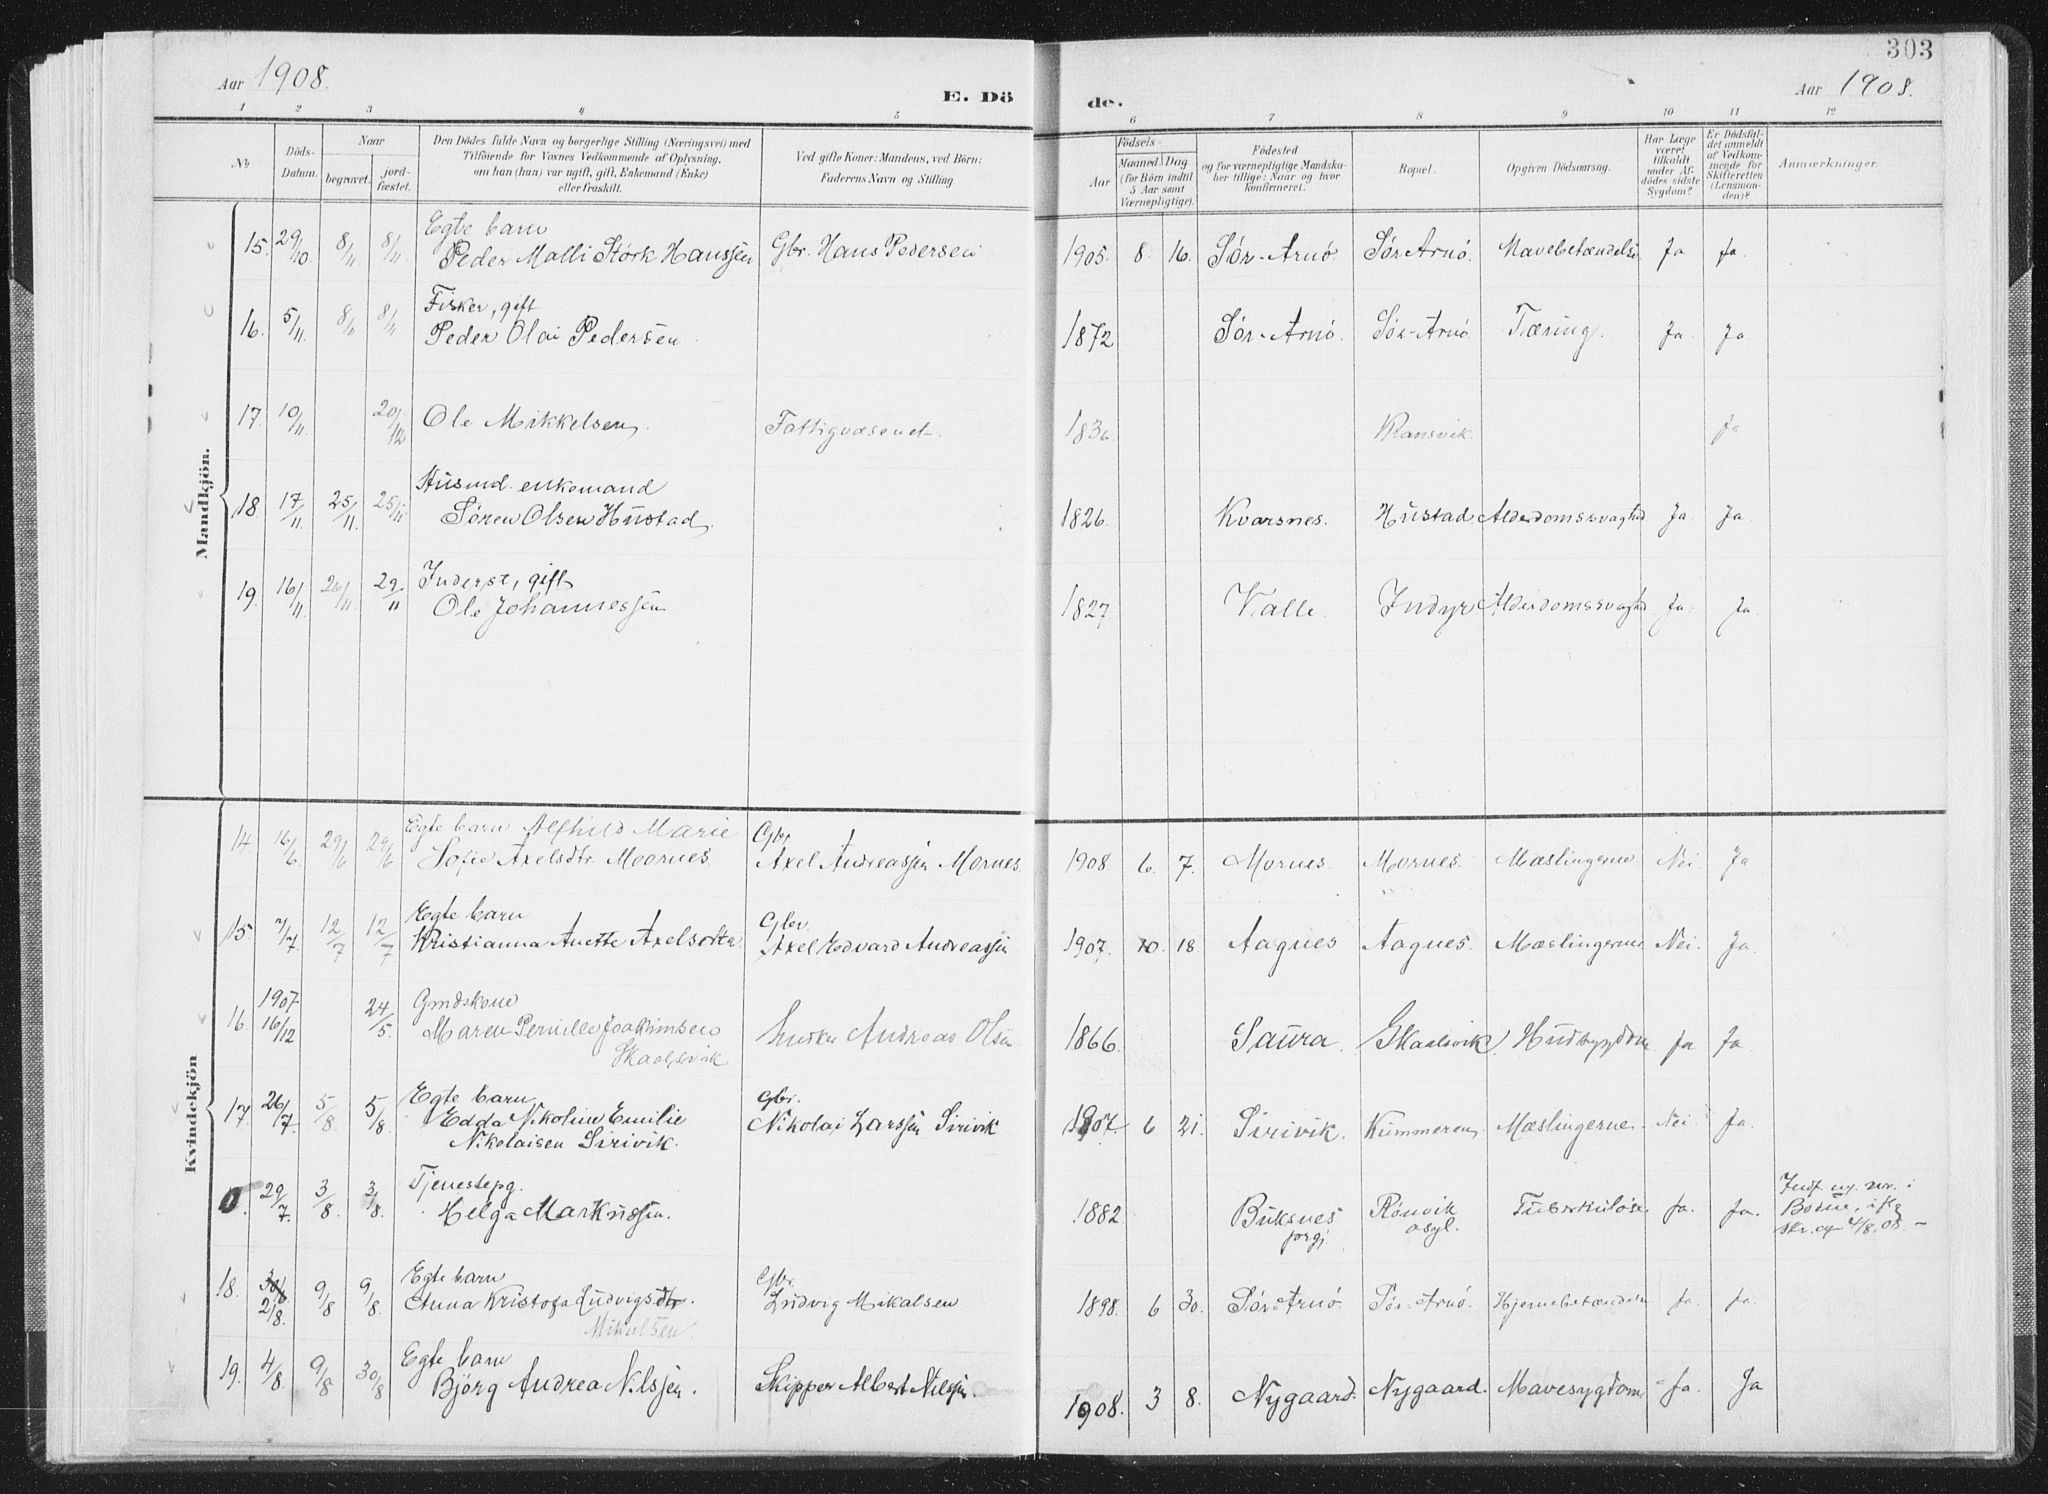 Aar 1908.
E. Dö
de.
303
Aar 1908.
1 2 3 4 5 6 7 8 9 10 11 12
No
Döds-
Datum.
Naar
begravet.
jord-
fæstet.
Den Dödes fulde Navn og borgerlige Stilling (Næringsvei) med
Tilföiende for Voxnes Vedkommende af Oplysning.
om han (hun) var ugift, gift, Enkemand (Enke)
eller fraskilt.
Ved gifte Koner: Mandens, ved Börn:
Faderens Navn og Stilling
Födsels-
Aar
Maaned Dag
(for Börn indtil
5 Aar samt
Værnepligtige).
Födested
og for værnepligtige Mandska-
ber tillige: Naar og hvor
konfirmeret.
Bopæl.
Opgiven Dödsaarsag.
Har Læge
været
tilkaldt
under Af-
dödes sidste
Sygdom?
Er Dödsfal-
det anmeldt
af Vedkom-
mende for
Skifteretten
(Lensman-
den)?
Anmærkninger.
Mandkjön.
Egte barn
15. 29/10 8/11 8/11 Peder Malli Störk Hanssen Gbr. Hans Pedersen 1905. 8. 16. Sör-Arnö Sör Arnö. Mavebetændelse Ja Ja.
Fisker, gift
16. 5/11 8/11 8/11 Peder Olai Pedersen 1872 Sör-Arnö. Sör-Arnö. Tæring. Ja. Ja
17. 10/11. 20/12 Ole Mikkelsen. Fattigvæsenet. 1836. Ja
Husmd. enkemand
18. 17/11. 25/11. 25/11 Sören Olsen Hustad. 1826. Kvarsnes. Hustad. Alderdomssvaghed Ja Ja
Inderst, gift
19. 16/11 26/11 29/11 Ole Johannessen 1827 Valle. Indyr Alderdomssvaghed. Ja. Ja.
Kvindekjön
Egte barn Alfhild Marie Gbr
14. 16/6 29/6 29/6 Sofie Axelsdtr. Moornes. Axel Andreassen Mornes 1908 6. 7. Mornes Mornes. Mæslingerne Nei. Ja
Egte barn Gbr.
15. 7/7. 12/7 12/7 Kristianna Anette Axelsdtr Axel Edvard Andreassen 1907. 10. 18. Aagnes Aagnes. Mæslingerne Nei. Ja.
1907 Gmdskone
16. 16/12 24/5. Maren Pernille Joakimsen Andreas Olsen 1866. Saura. Skaalsvik. Hudsygdom Ja Ja
Skaalsvik
Egte barn Gbr.
17. 26/7. 5/8. 5/8 Edda Nikoline Emilie Nikolai Larssen Sirivik 1907. 6 21. Sirivik. Kummeren. Mæslingerne. Nei. Ja.
Nikolaisen Sirivik.
Tjenestepg.
0. 29/7. 3/8. 3/8. Helga Markussen. 1882 Buksnes Rönvik Tuberkulose Ja. Ja.
prgj. asyl.
Bodin,
Egte barn Gbr.
18. 2/8. 9/8 9/8. Anna Kristofa Ludvigsdtr. Ludvig Mikalsen 1898. 6 30. Sör-Arnö. Sör-Arnö. Hjernebetændelse Ja. Ja.
Mikalsen.
Egte barn
19. 4/8. 9/8 30/8 Björg Andrea Nilssen. Skipper Albert Nilssen. 1908. 3 8. Nygaard. Nygaard. Mavesygdom Ja. Ja